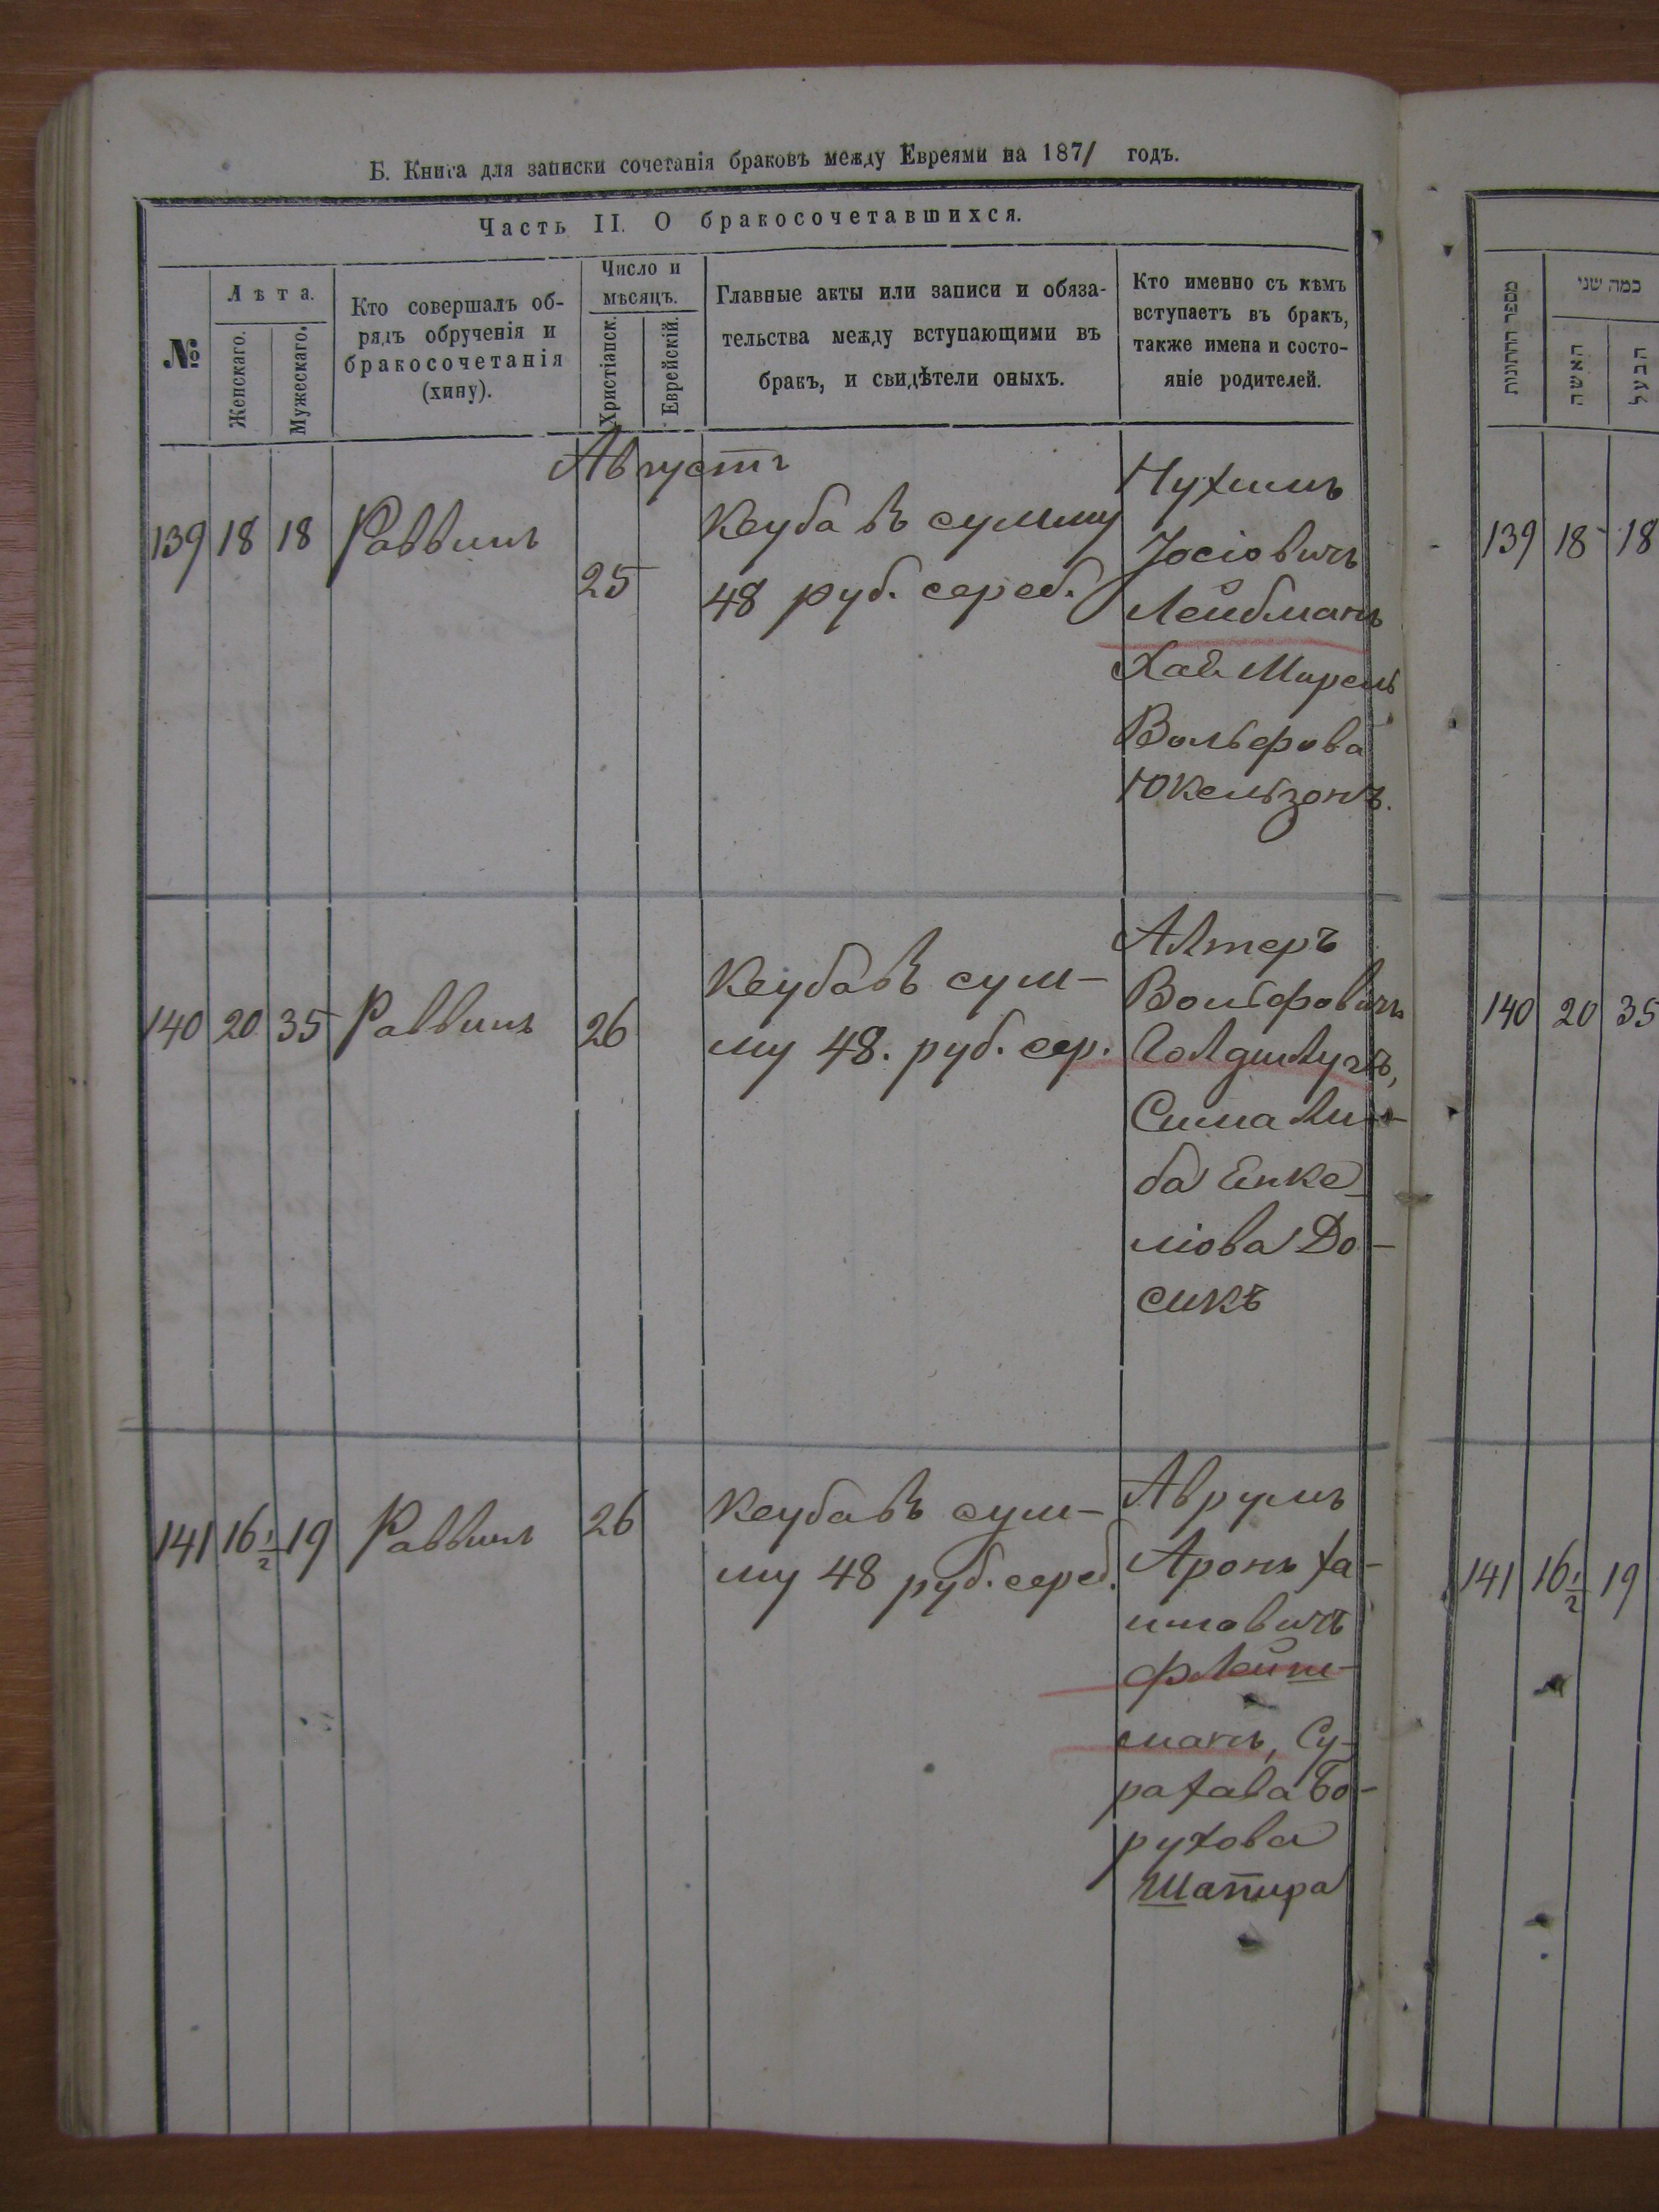 Б. Книга для записки сочетанія браковъ между Евреями на 1871 годъ.
Часть II. О бракосочетавшихся.
№
Лѣта.
Женскаго.
Мужескаго.
Кто совершалъ об-
рядъ обрученія и
бракосочетанія
(хину).
Число и
мѣсяцъ.
Христіанск.
Еврейскій.
Главные акты или записи и обяза-
тельства между вступающими въ
бракъ, и свидѣтели оныхъ.
Кто именно съ кѣмъ
вступаетъ въ бракъ,
также имена и состо-
яніе родителей.
Августъ
139 18 18 Раввинъ 25
Кеуба въ сумму
48 руб. сереб.
Нухимъ
Іосіовичъ
Лейбманъ
Хая Мирель
Вольфова
Юкельзонъ.
140 20 35 Раввинъ 26
Кеуба въ сум-
му 48. руб. сер.
Алтеръ
Вольфовичъ
Сима Ли-
ба Енке-
ліова До-
сикъ
141 16 1/2 19 Раввинъ 26
Кеуба въ сум-
му 48 руб. сереб.
Аврумъ
Аронъ Ха-
имовичъ
Флейш-
манъ, Су-
ра Хава Бо-
рухова
Шапира
מספר החתונות
כמה שני
האשה
הבעל
139 18 18
140 20 35
141 16 1/2 19